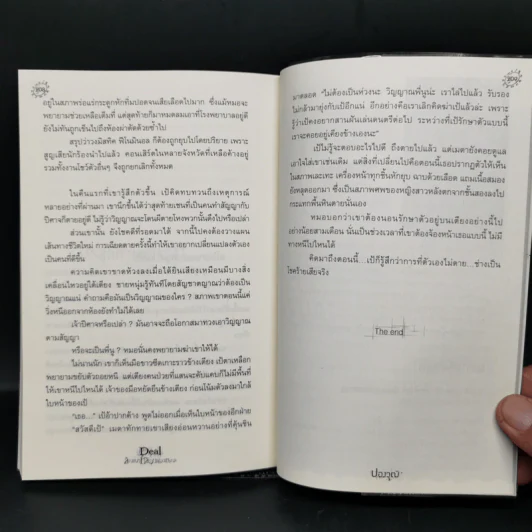 อยู่ในสภาพร่อแร่กระดูกหักทิ่มปอดจนเสียเลือดไปมาก ซึ่งแม้หมอจะ
พยายามช่วยเหลือเต็มที่ แต่สุดท้ายก็มาหมดลมเอาที่โรงพยาบาลอยู่ดี
ยังไม่ทันถูกเข็นไปถึงห้องผ่าตัดด้วยซ้ำไป
สรุปว่าวงมิสทิค ฟีโนมินอล ก็ต้องถูกยุบไปโดยปริยาย เพราะ
สูญเสียนักร้องนำไปแล้ว คอนเสิร์ตในหลายจังหวัดที่เหลือค้างอยู่
รวมทั้งงานโชว์ตัวอื่นๆ จึงถูกยกเลิกทั้งหมด
ในคืนแรกที่เขารู้สึกตัวขึ้น เป้คิดทบทวนถึงเหตุการณ์
หลายอย่างที่ผ่านมา เขานึกขึ้นได้ว่าสุดท้ายเชนที่เป็นคนทำสัญญากับ
ปีศาจก็ตายอยู่ดี ไม่รู้ว่าวิญญาณจะโดนผีตายโหงพวกนั้นดึงไปหรือเปล่า
ส่วนเขานั้น ยังโชคดีที่รอดมาได้ จากนี้ไปคงต้องวางแผน
เดินทางชีวิตใหม่ การเฉียดตายครั้งนี้ทำให้เขาอยากเปลี่ยนแปลงตัวเอง
เป็นคนที่ดีขึ้น
ความคิดเขาขาดห้วงลงเมื่อได้ยินเสียงเหมือนมีบางสิ่ง
เคลื่อนไหวอยู่ใต้เตียง ชายหนุ่มรู้ทันทีโดยสัญชาตญาณว่าต้องเป็น
วิญญาณแน่ คำถามคือมันเป็นวิญญาณของใคร ? สภาพเขาตอนนี้แค่
วิ่งหนีออกจากห้องยังทำไม่ได้เลย
เจ้าปีศาจหรือเปล่า ? มันอาจจะถือโอกาสมาทวงเอาวิญญาณ
ตามสัญญา
หรือจะเป็นพี่นู ? หมอนั่นคงพยายามฆ่าเขาให้ได้
ไม่นานนัก เขาก็เห็นมือขาวซีดเกาะราวข้างเตียง เป้ตาเหลือก
พยายามขยับตัวถอยหนี แต่เตียงคนป่วยที่แสนจะคับแคบก็ไม่มีพื้นที่
ให้เขาหนีไปไหนได้ เจ้าของมือหยัดยืนข้างเตียง ก่อนโน้มตัวลงมาใกล้
ใบหน้าของเป้
“เธอ...” เป้อ้าปากค้าง พูดไม่ออกเมื่อเห็นใบหน้าของอีกฝ่าย
“สวัสดีเป้” เมตาทักทายเขาเสียงอ่อนหวานอย่างที่คุ้นชิน
Deal
มาตลอด “ไม่ต้องเป็นห่วงนะ วิญญาณพี่นูน่ะ เราไล่ไปแล้ว รับรอง
ไม่กล้ามายุ่งกับเป้อีกแน่ อีกอย่างคือเราเลิกคิดฆ่าเป้แล้วล่ะ เพราะ
รู้ว่าเป้คงอยากสานฝันเล่นดนตรีต่อไป ระหว่างที่เป้รักษาตัวแบบนี้
เราจะคอยอยู่เคียงข้างเองนะ”
เป้ไม่รู้จะตอบอะไรไปดี ถึงตายไปแล้ว แต่เมตายังคอยดูแล
เอาใจใส่เขาเช่นเดิม แต่สิ่งที่เปลี่ยนไปคือตอนนี้เธอปรากฏตัวให้เห็น
ในสภาพเละเทะ เครื่องหน้าทุกชิ้นหักยุบ ฉาบด้วยเลือด แถมเนื้อสมอง
ยังหลุดออกมา ซึ่งเป็นสภาพศพของหญิงสาวหลังตกจากชั้นสองลงไป
กระแทกพื้นหินตายนั่นเอง
หมอบอกว่าเขาต้องนอนรักษาตัวอยู่บนเตียงอย่างนี้ไป
อย่างน้อยสามเดือน นั่นเป็นช่วงเวลาที่เขาต้องจ้องหน้าเธอแบบนี้ ไม่มี
ทางหนีไปไหนได้
คิดมาถึงตอนนี้...เป้ก็รู้สึกว่าการที่ตัวเองไม่ตาย...ช่างเป็น
โชคร้ายเสียจริง
The end